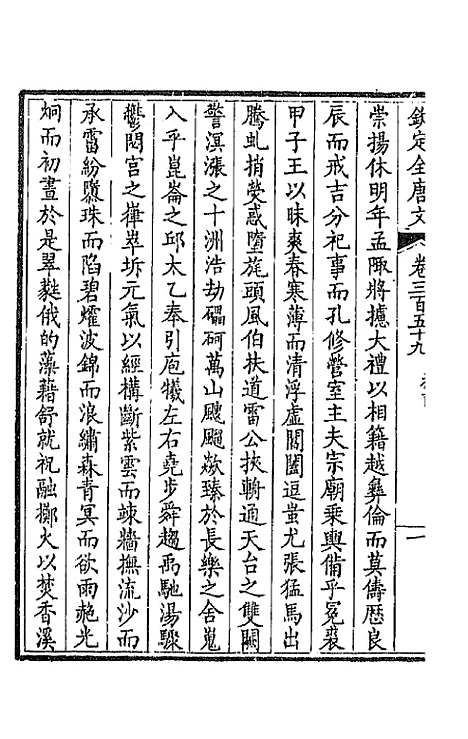 欽定全唐文 卷三百五十九 一
崇揚休明年孟陬將攄大禮以相籍越彝倫而莫儔歷良
辰而戒吉分祀事而孔修營室主夫宗廟乘輿備乎冕裘
甲子王以昧爽春寒薄而清浮虛閶闔逗蚩尤張猛馬出
騰虬捎熒惑墮旄頭風伯扶道雷公挾輈通天台之雙闕
警溟漲之十洲浩劫礧砢萬山飃飃欻臻於長樂之舍嵬
入乎崑崙之邱太乙奉引庖犧左右堯步舜趨禹馳湯驟
鬱閟宮之嵂崒坼元氣以經構斷紫雲而竦牆撫流沙而
承霤紛㒹珠而陷碧爥波錦而浪繡森青冥而欲雨赩光
炯而初晝於是翠蕤俄的藻藉舒就祝融擲火以焚香溪